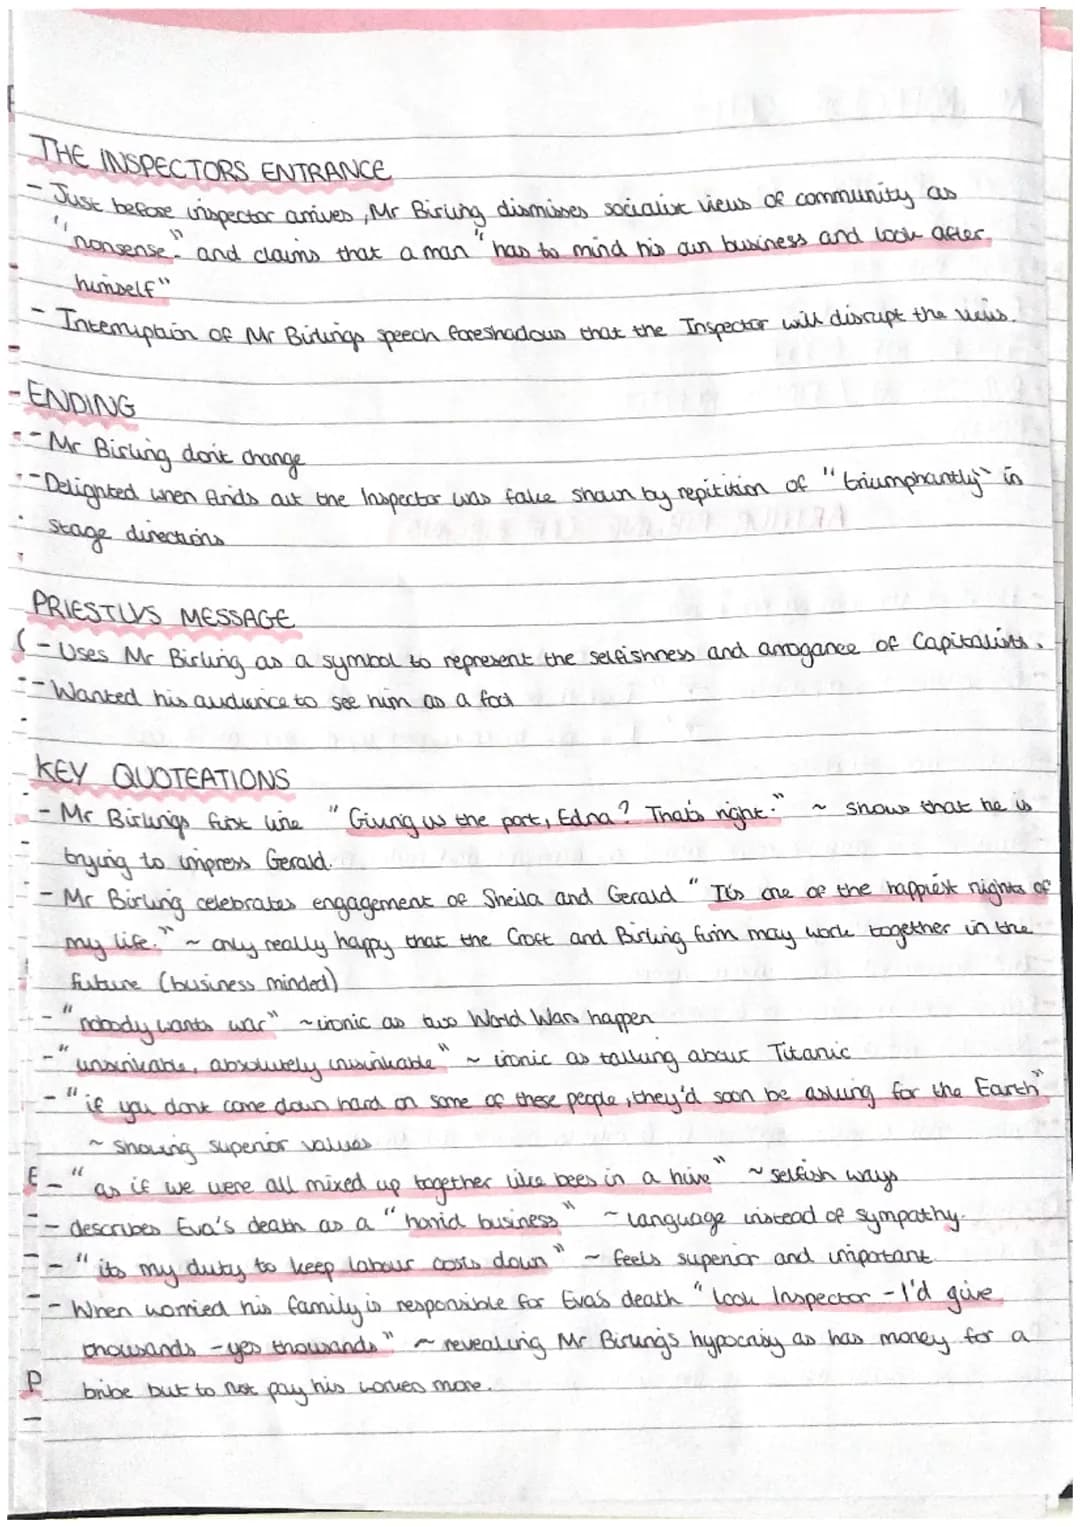 THE INSPECTORS ENTRANCE
- Just before inspector arrives, Mr Birling dismisses socialist views of community as
"nonsense" and claims that a man "has to mind his own business and look after
himself"
- Interruption of Mr Birlings speech foreshadows that the Inspector will disrupt the views.
- ENDING
- Mr Birling don't change
- Delighted when finds out the Inspector was fake shown by repitition of "triumphantly" in
stage directions
PRIESTLYS MESSAGE
- Uses Mr Birling as a symbol to represent the selfishness and arrogance of Capitalists.
- Wanted his audience to see him as a fool
KEY QUOTEATIONS
- Mr Birlings first line "Giving us the port, Edna? That's right." ~ shows that he is
trying to impress Gerald.
- Mr Birling celebrates engagement of Sheila and Gerald "It's one of the happiest nights of
my life." ~ only really happy that the Croft and Birling firm may work together in the
future (business minded)
- "nobody wants war" ~ ironic as two World Wars happen
- "unsinkable, absolutely unsinkable" ~ ironic as talking about Titanic
- "if you don't come down hard on some of these people, they'd soon be asking for the Earth"
~ showing superior values
- "as if we were all mixed up together like bees in a hive" ~ selfish ways
- describes Eva's death as a "horrid business" ~ language instead of sympathy.
- "its my duty to keep labour costs down" ~ feels superior and important.
- When worried his family is responsible for Eva's death "Look Inspector - I'd give
thousands - yes thousands" ~ revealing Mr Birling's hypocrisy as has money for a
bribe but to not pay his more.